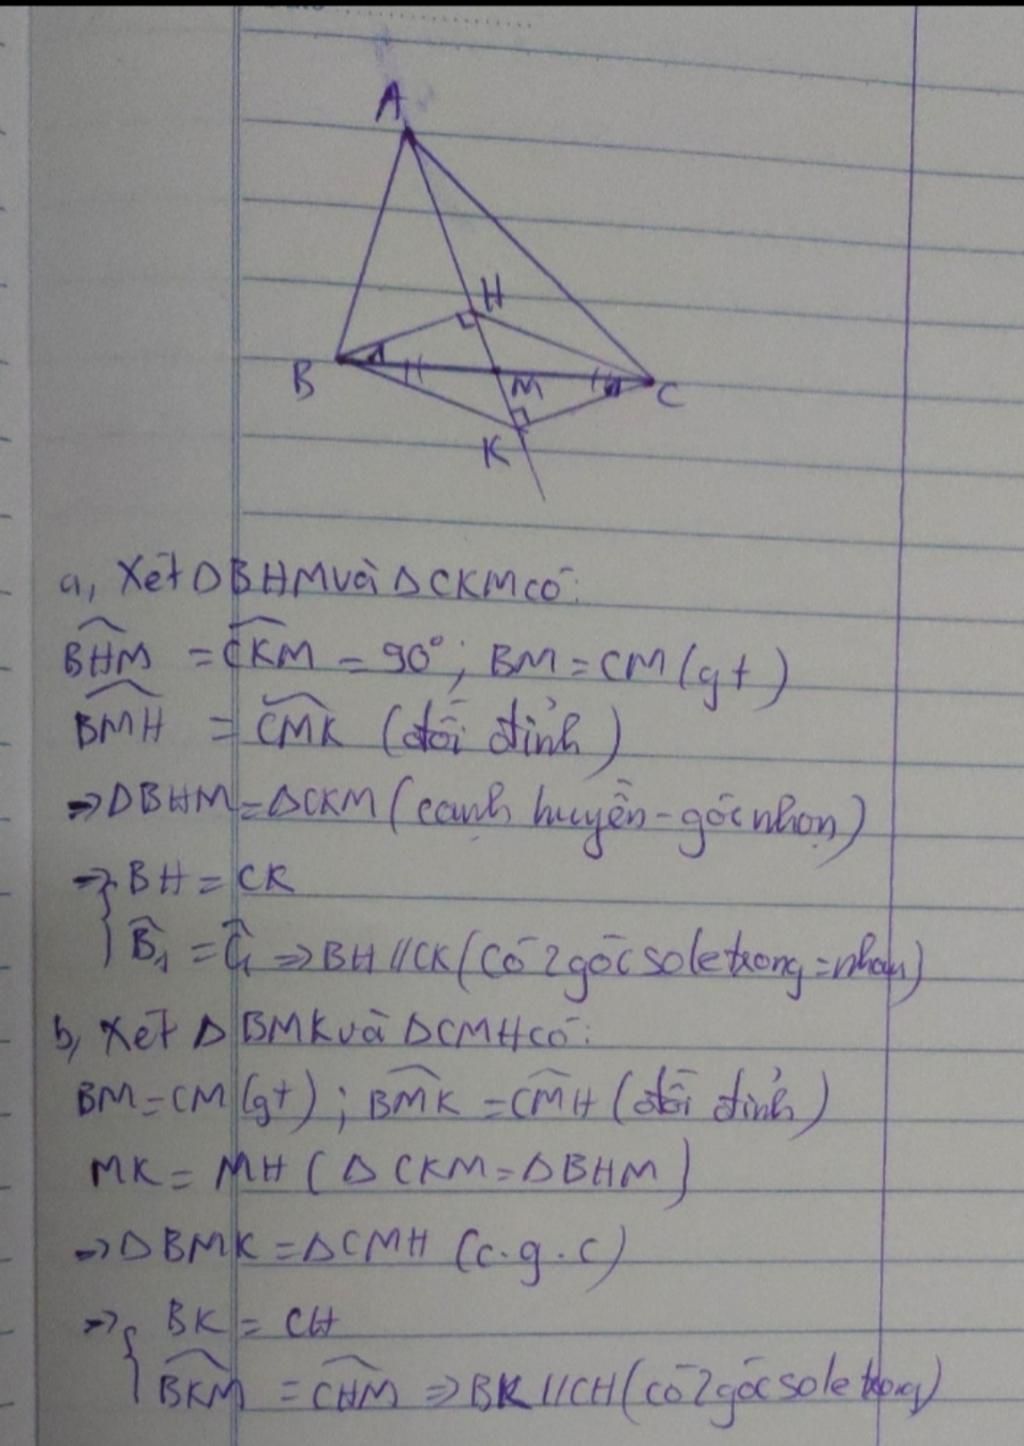 A
H
B
M
C
K
a, Xét ΔBHM và ΔCKM có:
$\widehat{BHM}$ = $\widehat{CKM}$ = 90°; BM = CM (gt)
$\widehat{BMH}$ = $\widehat{CMK}$ (đối đỉnh)
=> ΔBHM = ΔCKM (cạnh huyền - góc nhọn)
=> { BH = CK
$\widehat{B_1}$ = $\widehat{C_1}$ => BH // CK (có 2 góc so le trong = nhau)
b, Xét Δ BMK và ΔCMH có:
BM = CM (gt); $\widehat{BMK}$ = $\widehat{CMH}$ (đối đỉnh)
MK = MH (ΔCKM = ΔBHM)
=> ΔBMK = ΔCMH (c.g.c)
=> { BK = CH
$\widehat{BKM}$ = $\widehat{CHM}$ => BK // CH (có 2 góc so le trong)